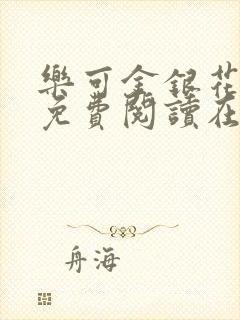 樂可金銀花
免費閱讀在
舟海